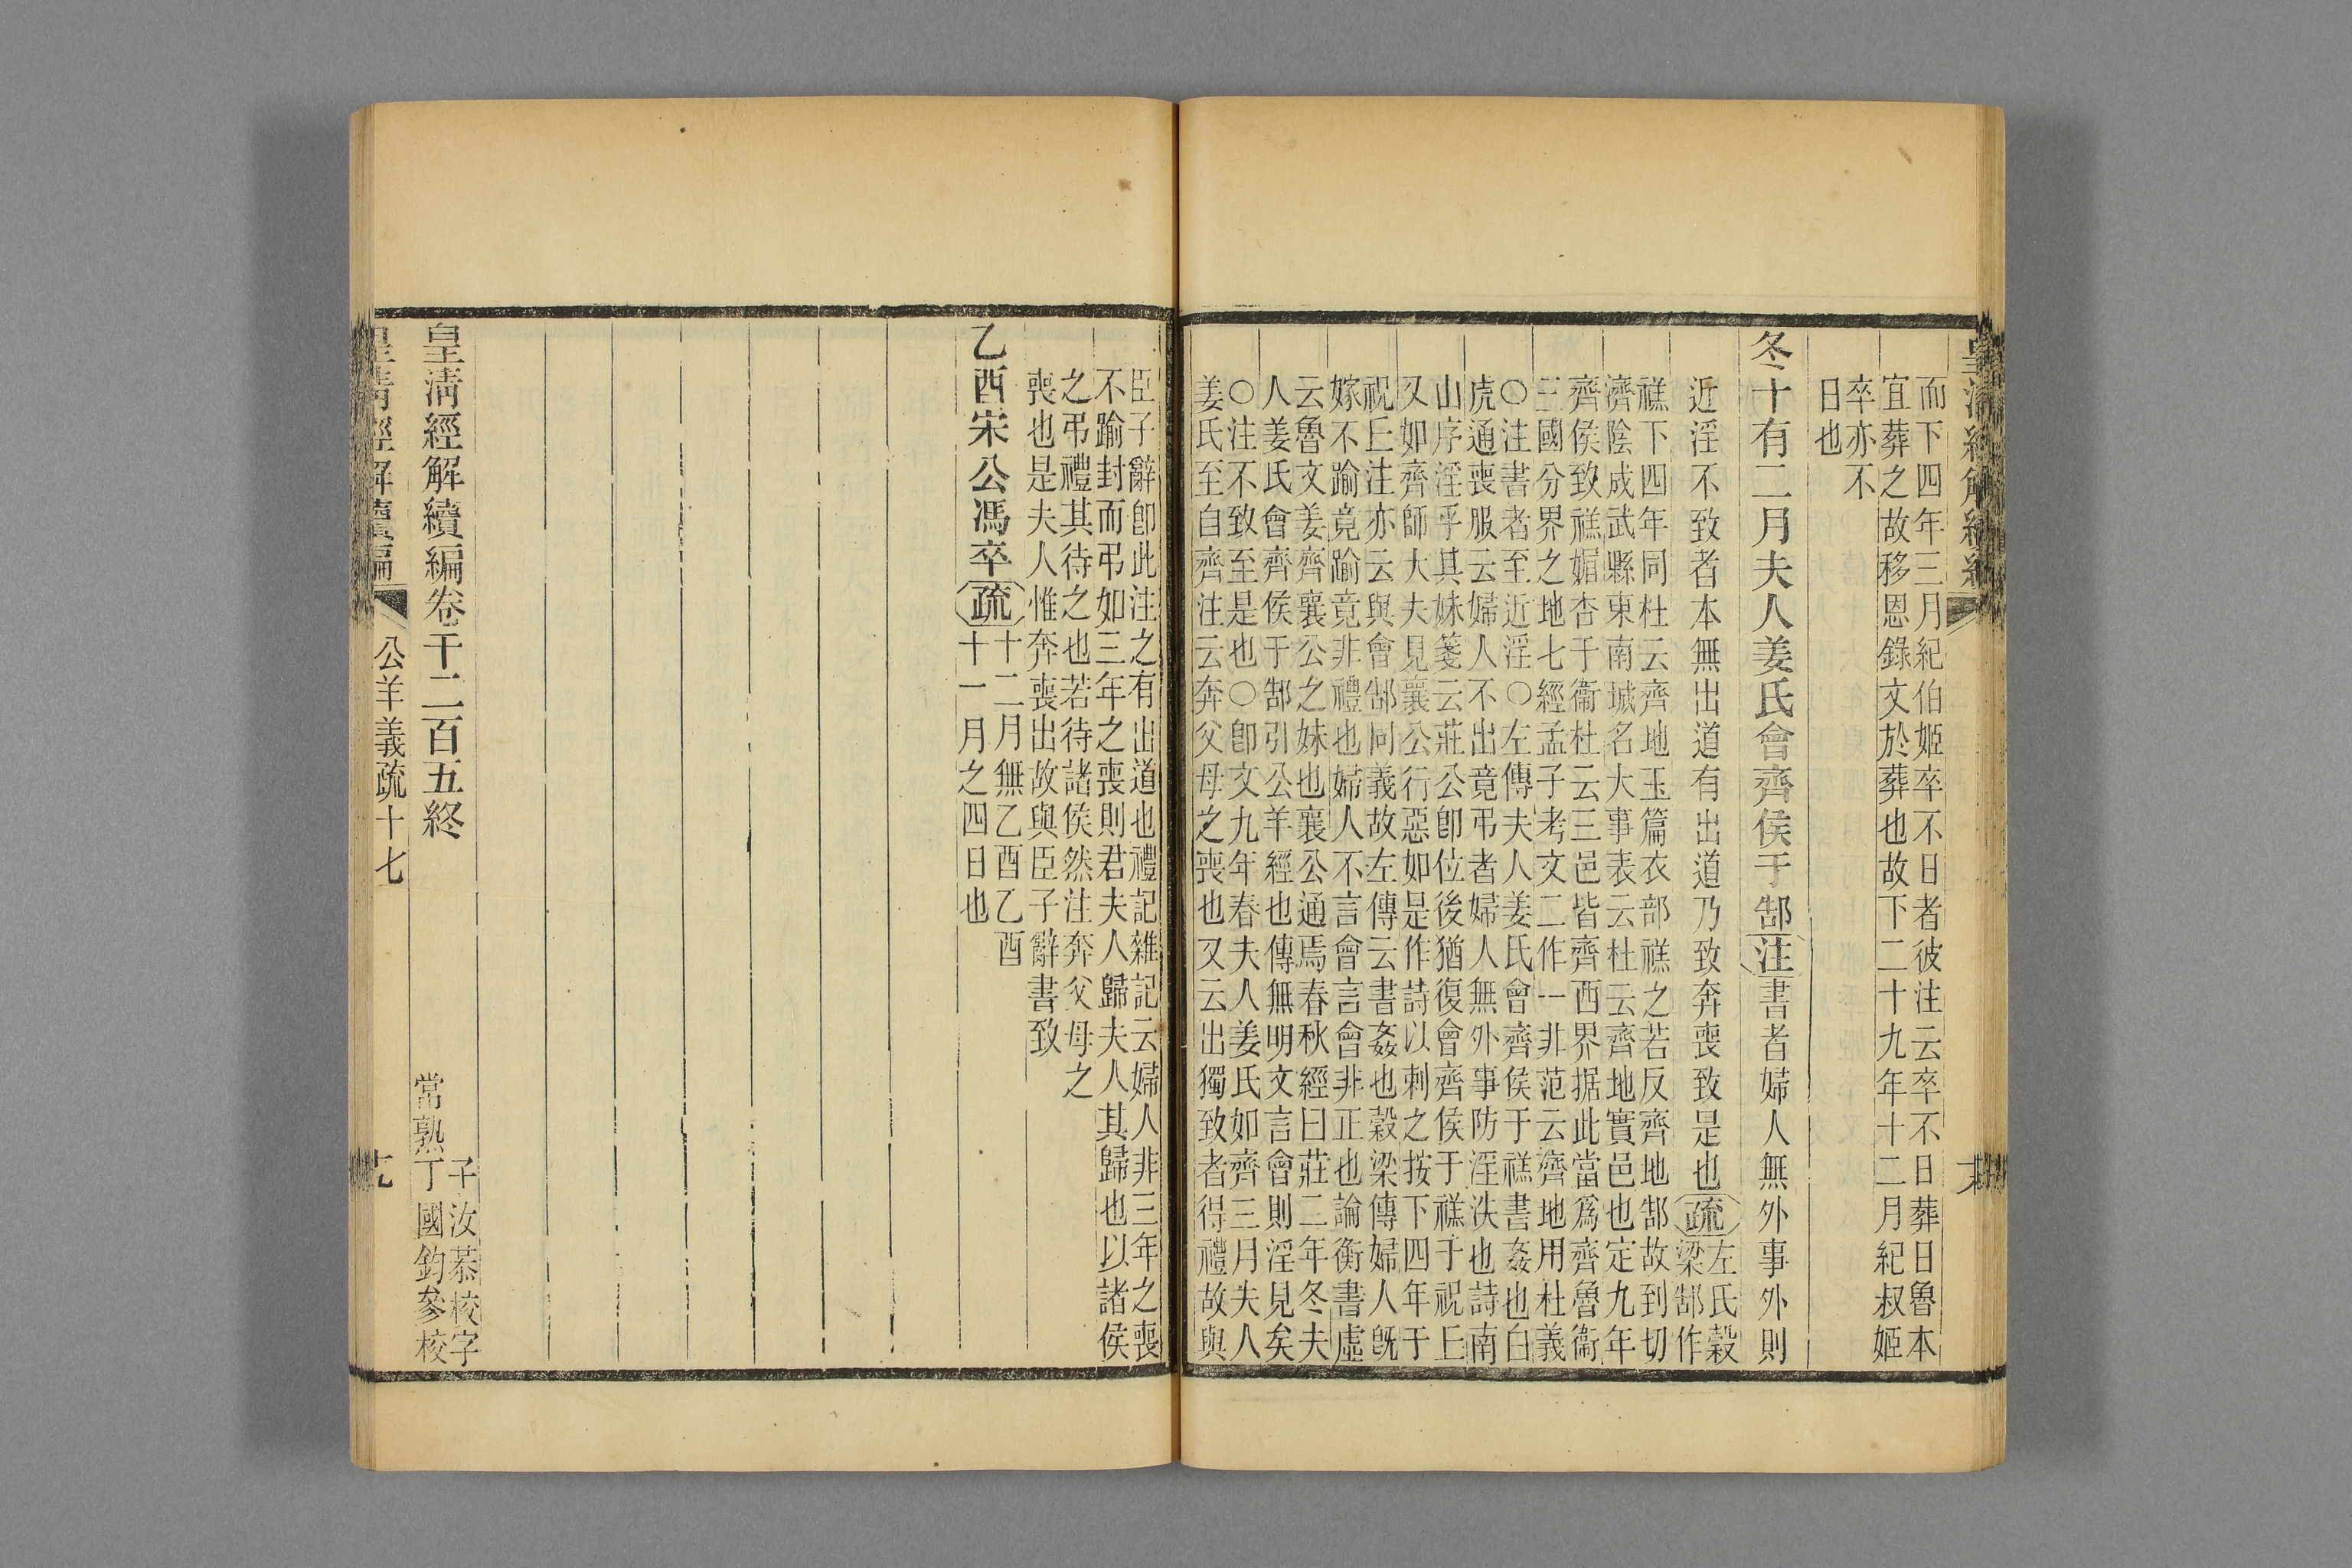 而下四年三月紀伯姬卒不日者彼注云卒不日葬日魯本
宜葬之故移恩錄文於葬也故下二十九年十二月紀叔姬
卒亦不
日也
冬十有二月夫人姜氏會齊侯于郜注書者婦人無外事外則
近淫不致者本無出道有出道乃致奔喪致是也疏
左氏穀
梁郜作
禚下四年同杜云齊地玉篇衣部禚之若反齊地郜故到切
濟陰成武縣東南城名大事表云杜云齊地實邑也定九年
齊侯致禚媚杏于衞杜云三邑皆齊西界据此當爲齊魯衞
三國分界之地七經孟子考文二作一非范云齊地用杜義
○注書者至近淫○左傳夫人姜氏會齊侯于禚書姦也白
虎通喪服云婦人不出竟弔者婦人無外事防淫泆也詩南
山序淫乎其妹箋云莊公卽位後猶復會齊侯于禚于祝丘
又如齊師大夫見襄公行惡如是作詩以刺之按下四年于
祝丘注亦云與會郜同義故左傳云書姦也穀梁傳婦人旣
嫁不踰竟踰竟非禮也婦人不言會言會非正也論衡書虛
云魯文姜齊襄公之妹也襄公通焉春秋經曰莊二年冬夫
人姜氏會齊侯于郜引公羊經也傳無明文言會則淫見矣
○注不致至是也○卽文九年春夫人姜氏如齊三月夫人
姜氏至自齊注云奔父母之喪也又云出獨致者得禮故與
臣子辭卽此注之有出道也禮記雜記云婦人非三年之喪
不踰封而弔如三年之喪則君夫人歸夫人其歸也以諸侯
之弔禮其待之也若待諸侯然注奔父母之
喪也是夫人惟奔喪出故與臣子辭書致
乙酉宋公馮卒疏
十二月無乙酉乙酉
十一月之四日也
皇清經解續編卷千二百五終
常熟
子汝恭校字
丁國鈞參校
皇清經解續編
公羊義疏十七